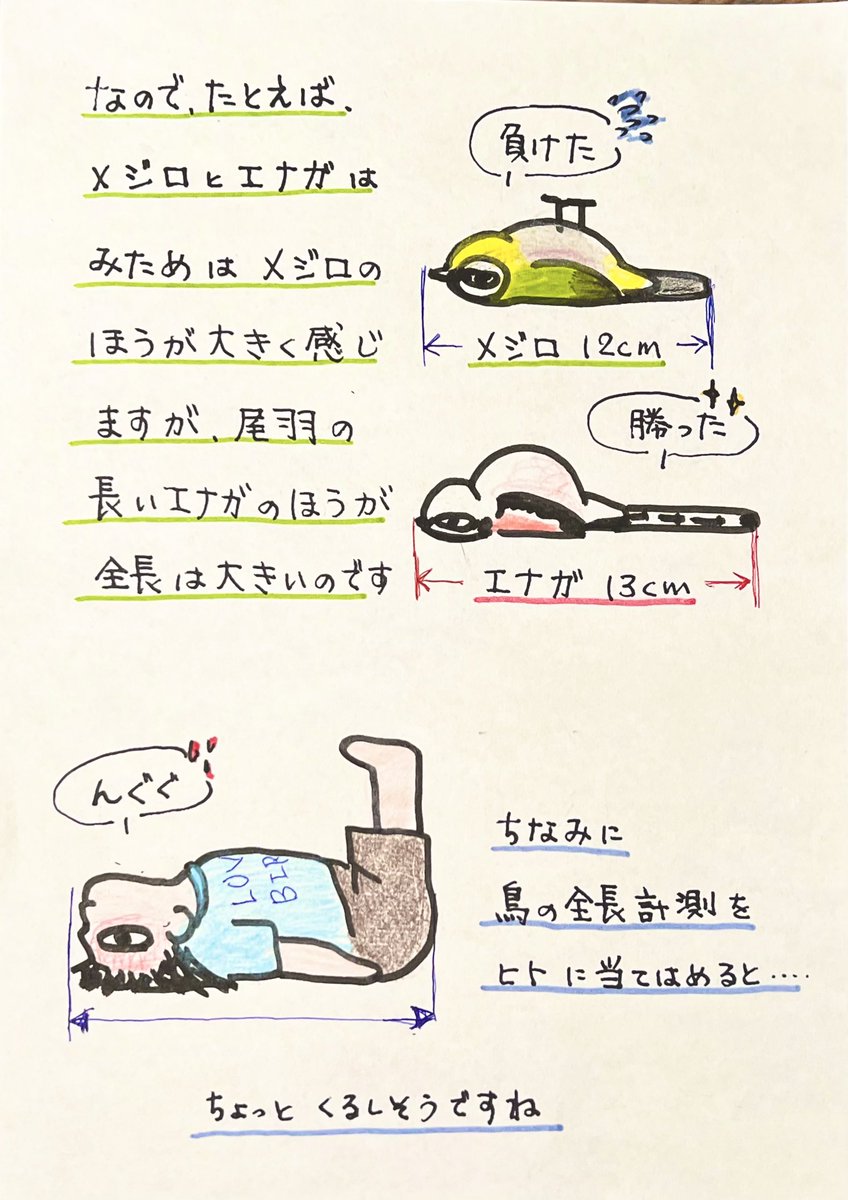 なので、たとえば、
メジロとエナガは
みためはメジロの
ほうが大きく感じ
ますが、尾羽の
長いエナガのほうが
全長は大きいのです
負けた
メジロ 12cm
勝った
エナガ 13cm
んぐぐ
LOV
BIR
ちなみに
鳥の全長計測を
ヒトに当てはめると‥‥
ちょっとくるしそうですね